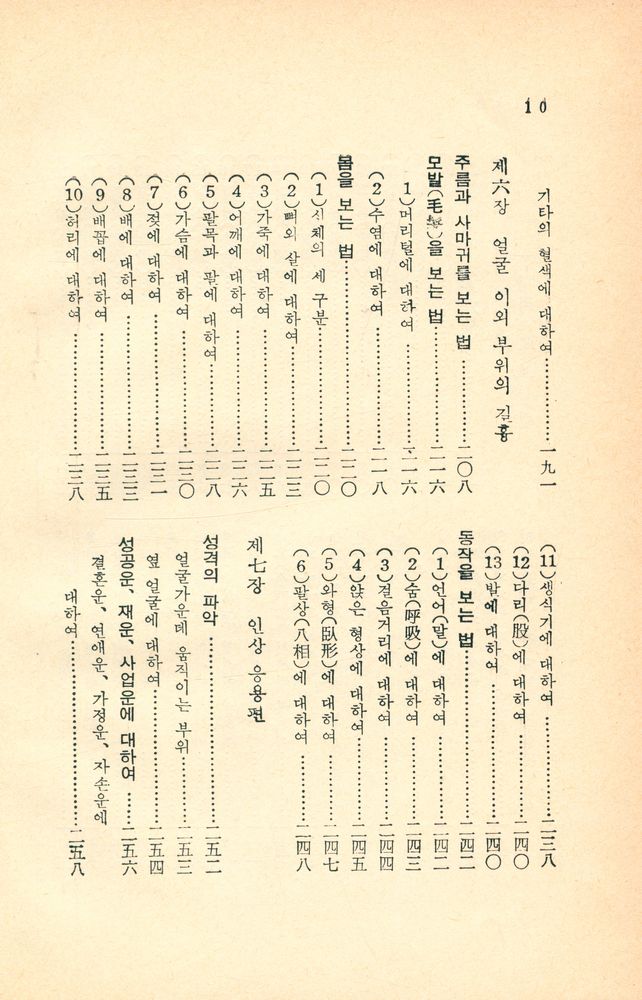 10
기타의 혈색에 대하여………………一九一
제六장 얼굴 이외 부위의 길흉
주름과 사마귀를 보는 법………………二○八
모발(毛髮)을 보는 법………………二一六
(1)머리털에 대하여………………二一六
(2)수염에 대하여………………二一八
몸을 보는 법………………二二○
(1)신체의 세 구분………………二二○
(2)뼈와 살에 대하여………………二二三
(3)가죽에 대하여………………二二五
(4)어깨에 대하여………………二二六
(5)팔목과 팔에 대하여………………二二八
(6)가슴에 대하여………………二三○
(7)젖에 대하여………………二三一
(8)배에 대하여………………二三三
(9)배꼽에 대하여………………二三五
(10)허리에 대하여………………二三八
(11)생식기에 대하여………………二三八
(12)다리(股)에 대하여………………二四○
(13)발에 대하여………………二四○
동작을 보는 법………………二四二
(1)언어(말)에 대하여………………二四二
(2)숨(呼吸)에 대하여………………二四三
(3)걸음거리에 대하여………………二四四
(4)앉은 형상에 대하여………………二四五
(5)와형(臥形)에 대하여………………二四七
(6)팔상(八相)에 대하여………………二四八
제七장 인상 응용편
성격의 파악………………二五二
얼굴가운데 움직이는 부위………………二五三
옆 얼굴에 대하여………………二五四
성공운、재운、사업운에 대하여……二五六
결혼운、연애운、가정운、자손운에
대하여………………二五八